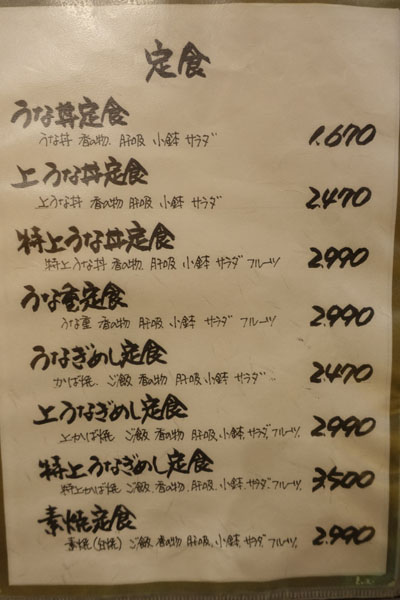 定食
うな丼定食
うな丼 香の物 肝吸 小鉢 サラダ 1.670
上うな丼定食
上うな丼 香の物 肝吸 小鉢 サラダ 2.470
特上うな丼定食
特上うな丼 香の物 肝吸 小鉢 サラダ フルーツ 2.990
うな重定食
うな重 香の物 肝吸 小鉢 サラダ フルーツ 2.990
うなぎめし定食
かば焼 ご飯 香の物 肝吸 小鉢 サラダ 2.470
上うなぎめし定食
上かば焼 ご飯 香の物 肝吸 小鉢 サラダ フルーツ 2.990
特上うなぎめし定食
特上かば焼 ご飯 香の物 肝吸 小鉢 サラダ フルーツ 3.500
素焼定食
素焼(白焼) ご飯 香の物 肝吸 小鉢 サラダ フルーツ 2.990